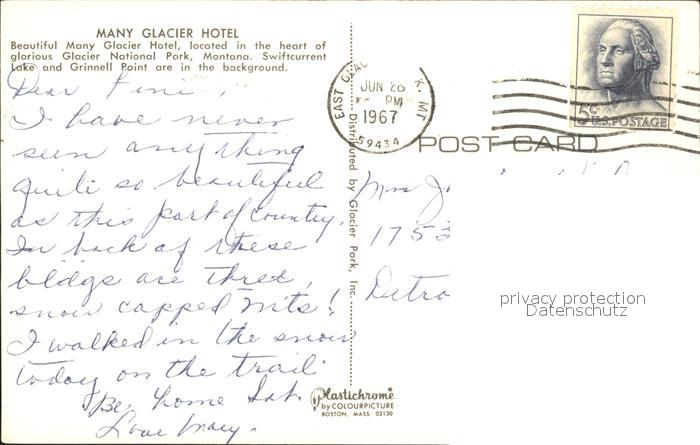 MANY GLACIER HOTEL
Beautiful Many Glacier Hotel, located in the heart of
glorious Glacier National Park, Montana. Swiftcurrent
Lake and Grinnell Point are in the background.
Dear
I have never
seen anything
quite so beautiful
as this part of country.
In back of these
bldgs are three,
snow capped mts!
I walked in the snow
today on the trail
Be home Sat.
Love Mary.
Distributed by Glacier Park, Inc.
Plastichrome
by COLOURPICTURE
BOSTON, MASS. 02130
EAST GLAC K. MT
JUN 26
PM
1967
59434
5¢
U.S. POSTAGE
POST CARD
Mrs J
1753
Detro
privacy protection
Datenschutz